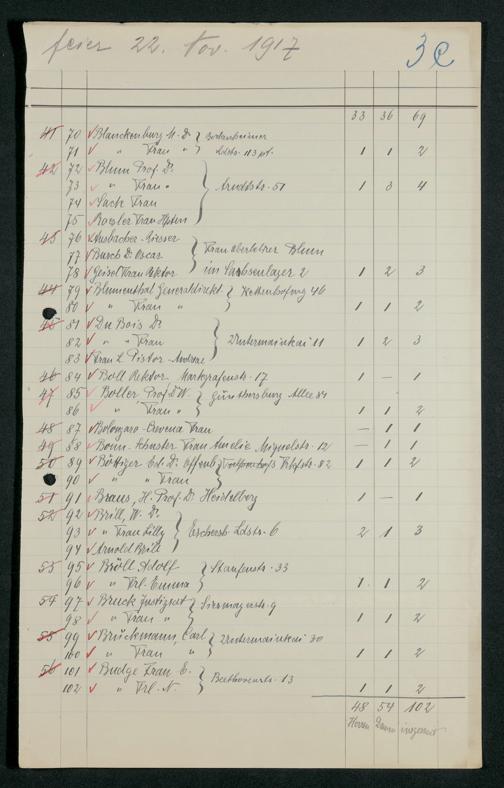 feier 22. Nov. 1917 3e
33 36 69
41 70 Blanckenburg M. D.
71 " Frau " Ldstr. 113 pt. 1 1 2
42 72 Blum Prof. Dr.
73 " Frau " Arndtstr. 51 1 3 4
74 Sack Frau
75 Roesler Frau
43 76
77 Busch Dr. Oscar Frau Oberlehrer Blum
78 Geisel Frau Rektor im Sachsenlager 2 1 2 3
44 79 Blumenthal Generaldirekt. Kettenhofweg 46
80 " Frau " 1 1 2
45 81 Du Bois Dr.
82 " " Frau Untermainkai 11 1 2 3
83 Frau L. Pistor - Andreae
46 84 Boll Rektor Markgrafenstr. 17 1 — 1
47 85 Boller Prof. Dr. W. Günthersburg Allee 84
86 " Frau " 1 1 2
48 87 Bolongaro-Crevenna Frau — 1 1
49 88 Bonn-Schuster Frau Amelie Miquelstr. 12 — 1 1
50 89 Böttiger Offenb. 82 1 1 2
90 " " Frau
51 91 Braus, H. Prof. Dr. Heidelberg 1 — 1
52 92 Brill, W. Dr.
93 " Frau Lilly Eschersh. Ldstr. 6 2 1 3
94 Arnold Brill
53 95 Bröll Adolf Staufenstr. 33
96 " Frl. Emma 1 1 2
54 97 Bruck Justizrat
98 " Frau " 1 1 2
55 99 Brückmann, Carl Untermainkai 30
100 " Frau " 1 1 2
56 101 Budge Frau E. Beethovenstr. 13
102 " Frl. N. 1 1 2
48 54 102
Herren Damen insgesamt